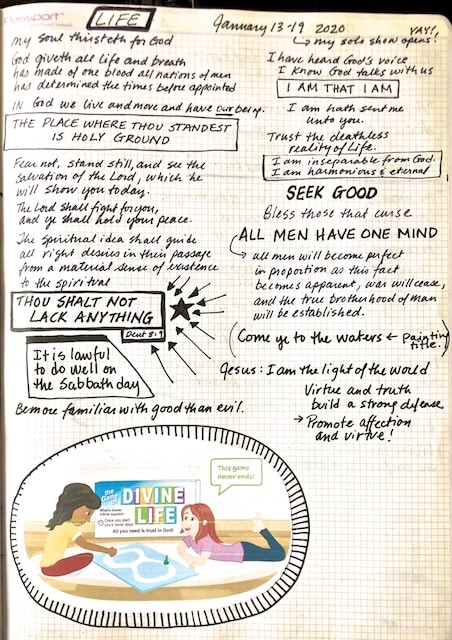 Passport™
LIFE
January 13-19 2020
YAY!!
my solo show opens!
My soul thirsteth for God
God giveth all life and breath
has made of one blood all nations of men
has determined the times before appointed
IN God we live and move and have our being.
THE PLACE WHERE THOU STANDEST
IS HOLY GROUND
Fear not, stand still, and see the
salvation of the Lord, which he
will show you today.
The Lord shall fight for you,
and ye shall hold your peace.
The spiritual idea shall guide
all right desires in their passage
from a material sense of existence
to the spiritual
THOU SHALT NOT
LACK ANYTHING
Deut 8:9
It is lawful
to do well on
the Sabbath day
Be more familiar with good than evil.
I have heard God's voice
I know God talks with us
I AM THAT I AM
I am hath sent me
unto you.
Trust the deathless
reality of Life.
I am inseparable from God.
I am harmonious & eternal
SEEK GOOD
Bless those that curse
ALL MEN HAVE ONE MIND
all men will become perfect
in proportion as this fact
becomes apparent, war will cease,
and the true brotherhood of man
will be established.
(Come ye to the waters ← Painting title!)
Jesus: I am the light of the world
Virtue and truth
build a strong defense
→ Promote affection
and virtue!
the Game of
DIVINE
LIFE
Once you start,
you never stop!
All you need is trust in God!
This game
never ends!